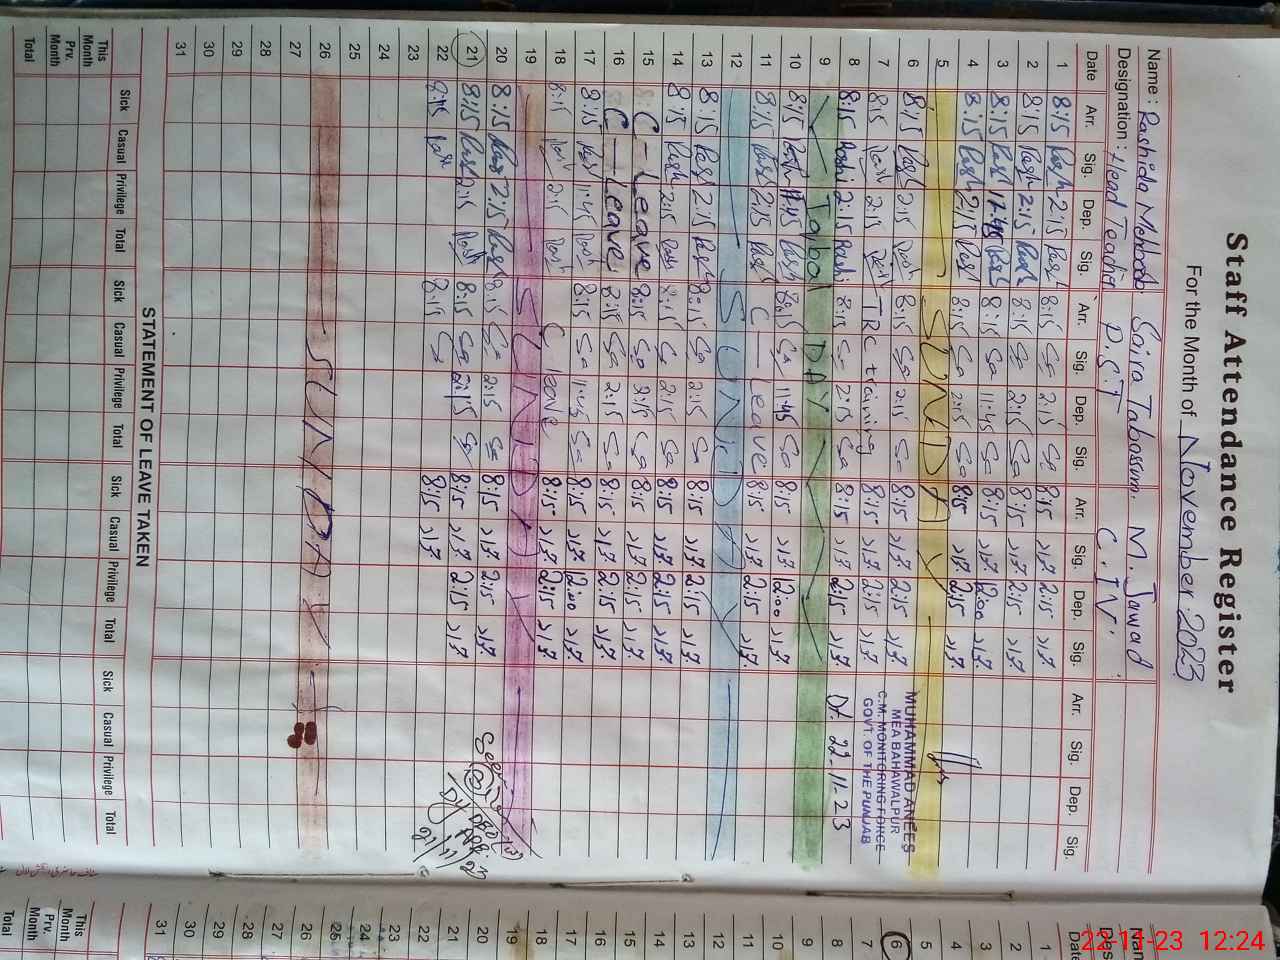 Staff Attendance Register
For the Month of November 2023
Name : Rashida Mehboob Saira Tabassum. M. Jawad
Designation : Head Teacher P.S.T C.IV.
Date Arr. Sig. Dep. Sig. Arr. Sig. Dep. Sig. Arr. Sig. Dep. Sig. Arr. Sig. Dep. Sig.
1 8:15 Rash 2:15 Rash 8:15 Sa 2:15 Sa 8:15 2:15
2 8:15 Rash 2:15 Rash 8:15 Sa 2:15 Sa 8:15 2:15
3 8:15 Rash 11:45 Rash 8:15 Sa 11:45 Sa 8:15 12:00
4 8:15 Rash 2:15 Rash 8:15 Sa 2:15 Sa 8:15 2:15
5 SUNDAY
6 8:15 Rash 2:15 Rash 8:15 Sa 2:15 Sa 8:15 2:15
7 8:15 Rash 2:15 Rash TRC training 8:15 2:15
8 8:15 Rash 2:15 Rash 8:15 Sa 2:15 Sa 8:15 2:15
9 Iqbal DAY
10 8:15 Rash 11:45 Rash 8:15 Sa 11:45 Sa 8:15 12:00
11 8:15 Rash 2:15 Rash C Leave 8:15 2:15
12 SUNDAY
13 8:15 Rash 2:15 Rash 8:15 Sa 2:15 Sa 8:15 2:15
14 8:15 Rash 2:15 Rash 8:15 Sa 2:15 Sa 8:15 2:15
15 C Leave 8:15 Sa 2:15 Sa 8:15 2:15
16 C Leave 8:15 Sa 2:15 Sa 8:15 2:15
17 8:15 Rash 11:45 Rash 8:15 Sa 11:45 Sa 8:15 12:00
18 8:15 Rash 2:15 Rash C leave 8:15 2:15
19 SUNDAY
20 8:15 Rash 2:15 Rash 8:15 Sa 2:15 Sa 8:15 2:15
21 8:15 Rash 2:15 Rash 8:15 Sa 2:15 Sa 8:15 2:15
22 8:15 Rash 8:15 Sa 8:15
23
24
25
26 SUNDAY
27
28
29
30
31
MUHAMMAD ANEES
MEA BAHAWALPUR
C.M. MONITORING FORCE
GOVT. OF THE PUNJAB
Dt. 22-11-23
Seen
21/11/23
STATEMENT OF LEAVE TAKEN
Sick Casual Privilege Total Sick Casual Privilege Total Sick Casual Privilege Total Sick Casual Privilege Total
This Month
Prv. Month
Total
Date
1
2
3
4
5
6
7
8
9
10
11
12
13
14
15
16
17
18
19
20
21
22
23
24
25
26
27
28
29
30
31
This Month
Prv. Month
Total
22-11-23 12:24